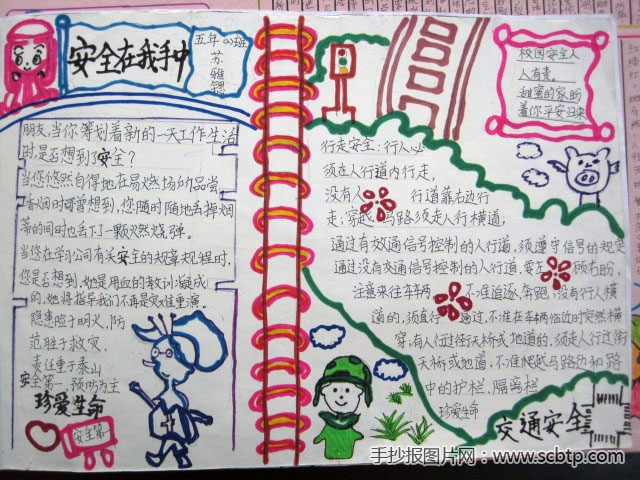 安全在我手中
五年(2)班
苏雅锶
朋友,当你筹划着新的一天工作生活
时,是否想到了安全?
当您悠然自得地在易燃场所品尝
香烟时可曾想到,您随时随地丢掉烟
蒂的同时也丢下了一颗火燃烧弹。
当您在学习公司有关安全的规章规程时,
您是否想到,她是用血的教训凝成
的,她将指导我们不再是灾难重演。
隐患险于明火,防
范胜于救灾,
责任重于泰山
安全第一,预防为主
珍爱生命
安全第一
校园安全人
人有责。
甜蜜的家盼
着你平安归来
行走安全:行人必
须在人行道内行走,
没有人行道靠右边行
走;穿越马路须走人行横道,
通过有交通信号控制的人行道,须遵守信号的规定
通过没有交通信号控制的人行道,要左顾右盼,
注意来往车辆,不准追逐,奔跑,没有行人横
道的,须直行通过,不准在车辆临近时突然横
穿,有人行过街天桥或地道的,须走人行过街
天桥或地道,不准爬越马路边和路
中的护栏,隔离栏
珍爱生命
交通安全
手抄报图片网:www.scbtp.com